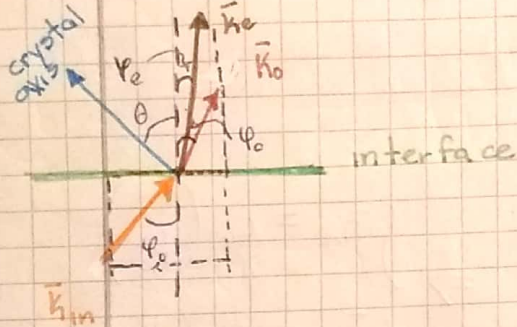 crystal
axis
k̄e
φe
k̄o
θ
φo
interface
φi
k̄in